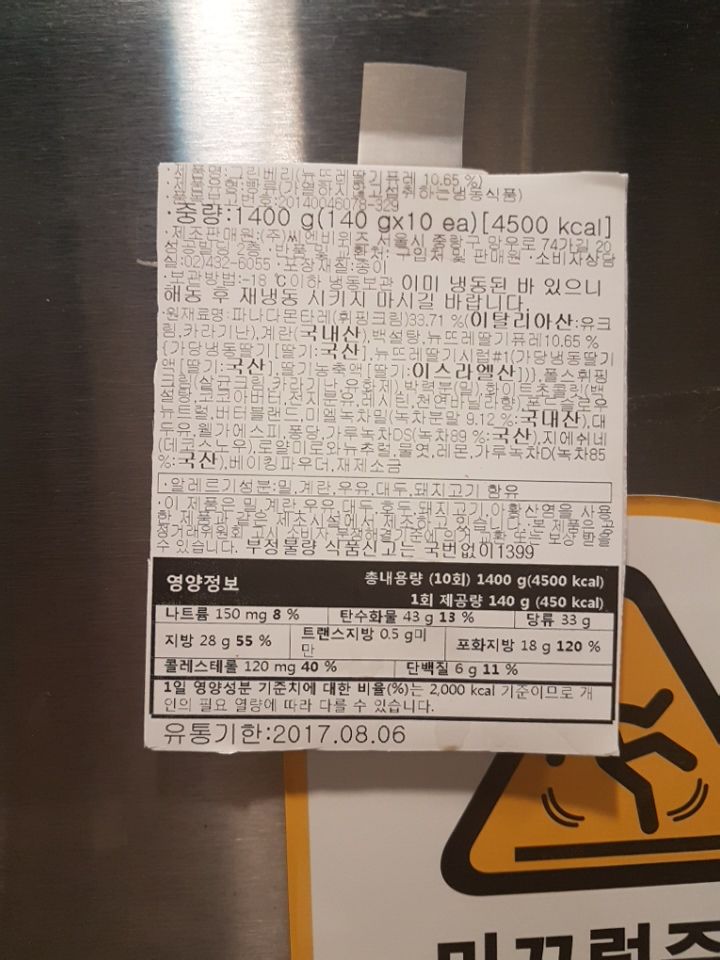 ·제품명:그린베리(뉴뜨레딸기퓨레 10.65 %)
·식품유형:빵류(가열하지않고섭취하는냉동식품)
·품목보고번호:20140046078-329
·중량:1400 g(140 gx10 ea)[4500 kcal]
·제조판매원:(주)씨엔비위즈 서울시 중랑구 망우로 74가길 20
2층 ·반품 및 교환처: 구입처 및 판매원 ·소비자상담
실:02)432-6055 ·포장재질:종이
·보관방법:-18 ℃이하 냉동보관 이미 냉동된 바 있으니
해동 후 재냉동 시키지 마시길 바랍니다.
·원재료명:파나다몬타레(휘핑크림)33.71 %(이탈리아산:유크
림,카라기난),계란(국내산),백설탕,뉴뜨레딸기퓨레10.65 %
{가당냉동딸기[딸기:국산],뉴뜨레딸기시럽#1(가당냉동딸기
액[딸기:국산],딸기농축액[딸기:이스라엘산])},폴스휘핑
크림(살균크림,카라기난,유화제),박력분(밀),화이트초콜릿(백
설탕,코코아버터,전지분유,레시틴,천연바닐라향),
뉴트럴,버터블랜드,미엘녹차밀(녹차분말 9.12 %:국내산),대
두유,웰가에스피,퐁당,가루녹차DS(녹차89 %:국산),지에쉬네
(데코스노우),로얄미로와뉴추럴,물엿,레몬,가루녹차D(녹차85
%:국산),베이킹파우더,재제소금
·알레르기성분:밀,계란,우유,대두,돼지고기 함유
·이 제품은 밀,계란,우유,대두,호두,돼지고기,아황산염을 사용
한 제품과 같은 제조시설에서 제조하고 있습니다.·본 제품은 공
정거래위원회 고시 소비자 분쟁해결기준에 의거 교환 또는 보상 받을
수 있습니다. 부정불량 식품신고는 국번없이1399
영양정보 총내용량 (10회) 1400 g(4500 kcal)
1회 제공량 140 g (450 kcal)
나트륨 150 mg 8 % 탄수화물 43 g 13 % 당류 33 g
지방 28 g 55 % 트랜스지방 0.5 g미만 포화지방 18 g 120 %
콜레스테롤 120 mg 40 % 단백질 6 g 11 %
1일 영양성분 기준치에 대한 비율(%)는 2,000 kcal 기준이므로 개
인의 필요 열량에 따라 다를 수 있습니다.
유통기한:2017.08.06
미끄럼주